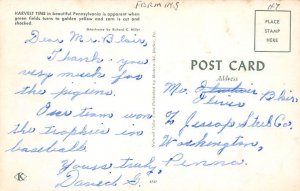 FARMING
HARVEST TIME in beautiful Pennsylvania is apparent when
green fields turn to golden yellow and corn is cut and
shocked.
Ektachrome by Richard C. Miller
Dear Mr. Blair,
Thank you
very much for
the pigeons.
Our team won
the trophies in
baseball.
Yours truly,
David G.
K
PLACE
STAMP
HERE
POST CARD
Address
Mr.
Oliver Blair
Jessop Steel Co.
Washington,
Penna.